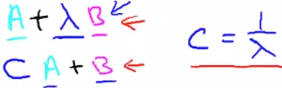 A + λ B
C A + B
C = 1/λ